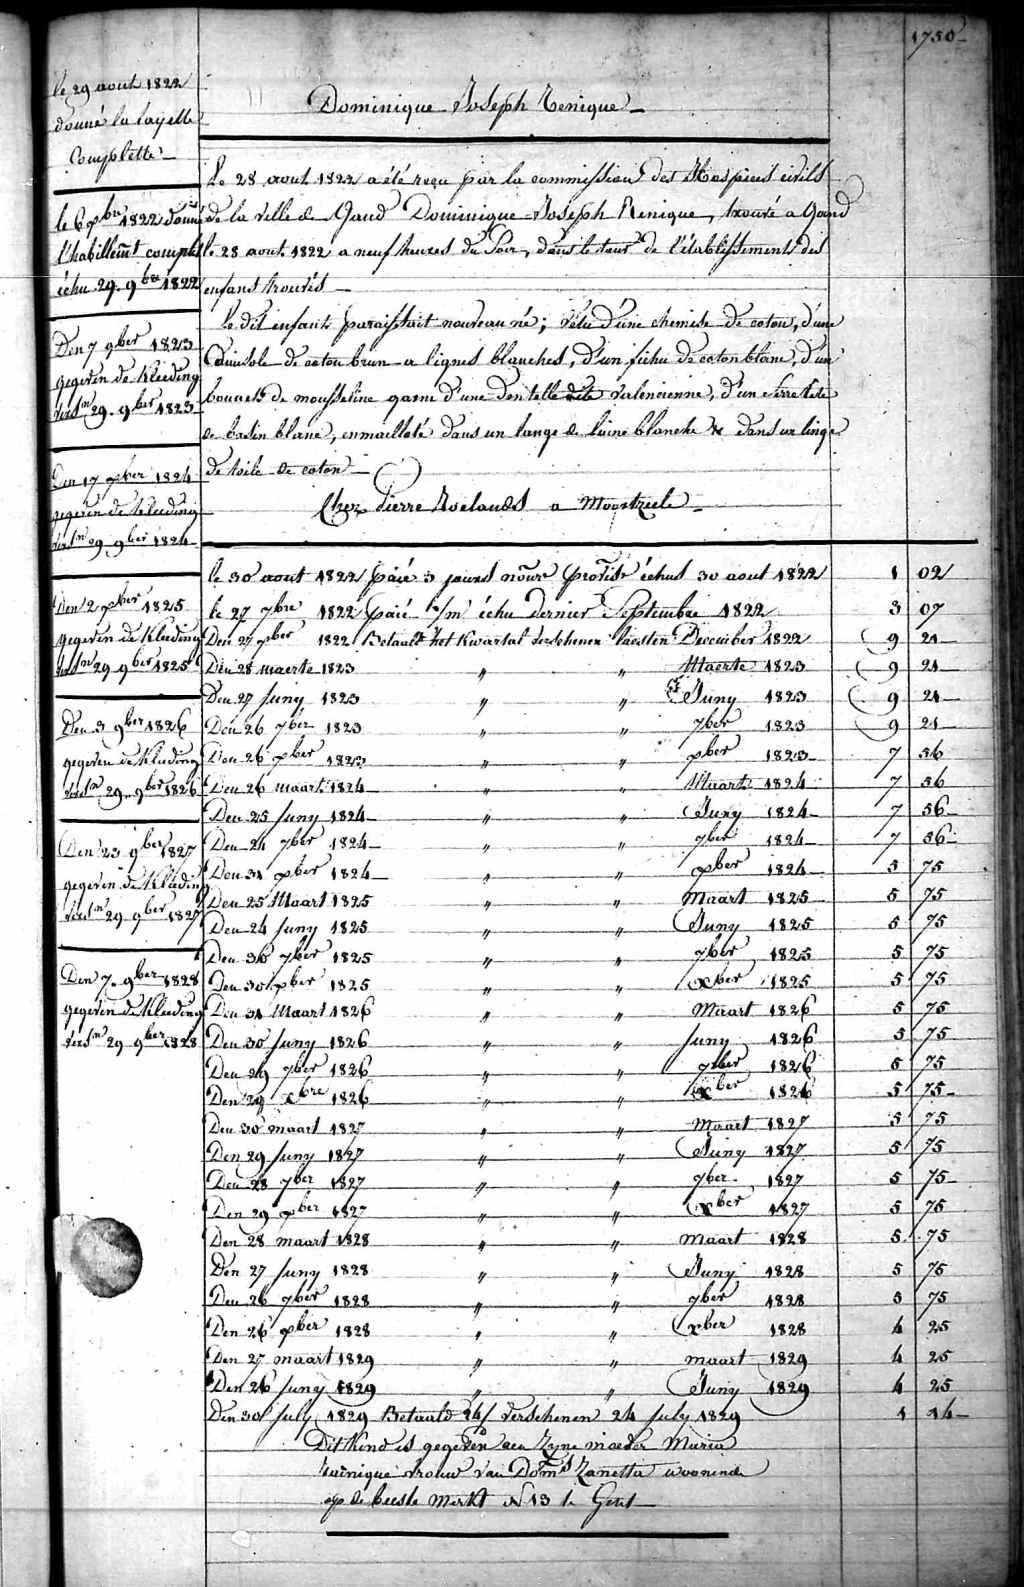 1750
le 29 aout 1822
donné la layette
Complette
le 6 9bre 1822 donné
l'habillemt complet
échu 29 9bre 1822
Den 7 9ber 1823
gegeven de Kleeding
versn 29 9ber 1823
Den 17 9ber 1824
gegeven de Kleeding
versn 29 9ber 1824
Den 2 9ber 1825
gegeven de Kleeding
versn 29 9ber 1825
Den 3 9ber 1826
gegeven de Kleeding
versn 29 9ber 1826
Den 23 9ber 1827
gegeven de Kleeding
versn 29 9ber 1827
Den 7 9ber 1828
gegeven de Kleeding
versn 29 9ber 1828
Dominique Joseph Renique
Le 28 aout 1822 a été reçu par la commission des Hospices civils
de la ville de Gand Dominique Joseph Renique, trouvé a Gand
le 28 aout 1822 a neuf heures du Soir, dans le tour de l'établissement des
enfans trouvés
Le dit enfant paraissait nouveau né; vêtu d'une chemise de coton, d'une
Camisole de coton brun a lignes blanches, d'un fichu de coton blanc, d'un
bonnet de mousseline garni d'une dentelle dite Valencienne, d'un serre tête
de basin blanc, enmailloté dans un lange de laine blanche & dans un linge
de toile de coton
Chez Pierre Roelands a Moortzeele
le 30 aout 1822 paié 3 jours nourre provisre échus 30 aout 1822 1 02
le 27 7bre 1822 paié 1/m échu dernier Septembre 1822 3 07
Den 27 xber 1822 Betaald het Kwartal verschenen laesten December 1822 9 21
Den 28 maerte 1823 " " Maerte 1823 9 21
Den 27 Juny 1823 " " Juny 1823 9 21
Den 26 7ber 1823 " " 7ber 1823 9 21
Den 26 xber 1823 " " xber 1823 7 56
Den 26 maart 1824 " " Maart 1824 7 56
Den 25 Juny 1824 " " Juny 1824 7 56
Den 24 7ber 1824 " " 7ber 1824 7 56
Den 31 xber 1824 " " xber 1824 5 75
Den 25 Maart 1825 " " Maart 1825 5 75
Den 24 Juny 1825 " " Juny 1825 5 75
Den 30 7ber 1825 " " 7ber 1825 5 75
Den 30 xber 1825 " " xber 1825 5 75
Den 31 Maart 1826 " " Maart 1826 5 75
Den 30 Juny 1826 " " Juny 1826 5 75
Den 29 7ber 1826 " " 7ber 1826 5 75
Den 29 xbre 1826 " " xber 1826 5 75
Den 30 maart 1827 " " Maart 1827 5 75
Den 29 Juny 1827 " " Juny 1827 5 75
Den 28 7ber 1827 " " 7ber 1827 5 75
Den 29 xber 1827 " " xber 1827 5 75
Den 28 maart 1828 " " maart 1828 5 75
Den 27 Juny 1828 " " Juny 1828 5 75
Den 26 7ber 1828 " " 7ber 1828 5 75
Den 26 xber 1828 " " xber 1828 4 25
Den 27 maart 1829 " " maart 1829 4 25
Den 26 Juny 1829 " " Juny 1829 4 25
Den 30 July 1829 Betaald 24/ Verschenen 24 July 1829 1 14
Dit Kind is gegeven aen Zyne moeder Maria
vrouw van Doms Zanetta woonende
op de beeste Merkt N 13 te Gent